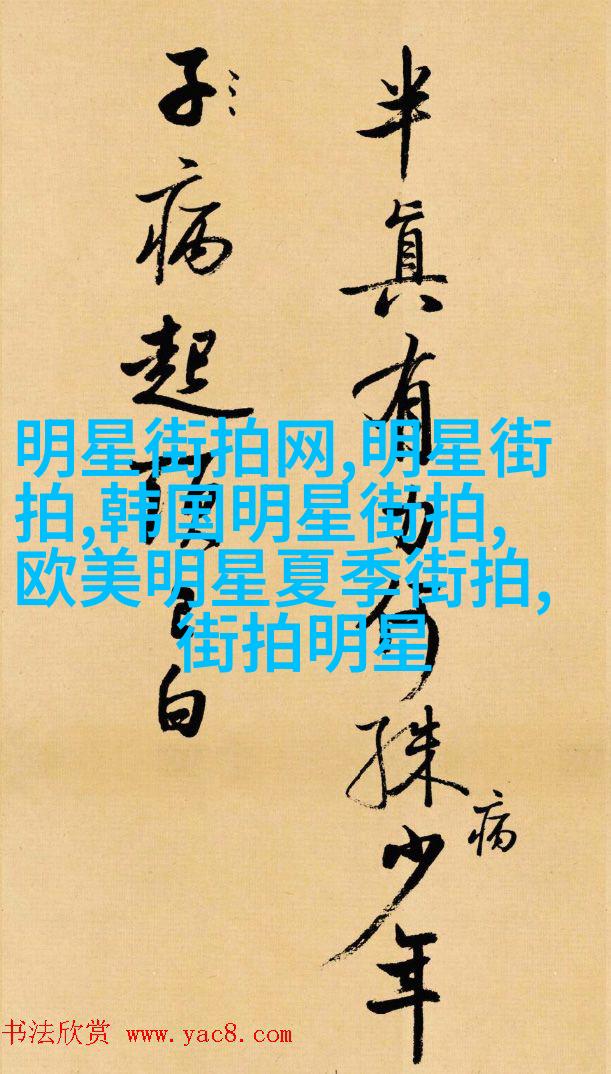 半眞有力何殊少年
病
子病起頭已白
明星街拍网,明星街
拍,韩国明星街拍,
欧美明星夏季街拍,
街拍明星
书法欣赏 www.yac8.com